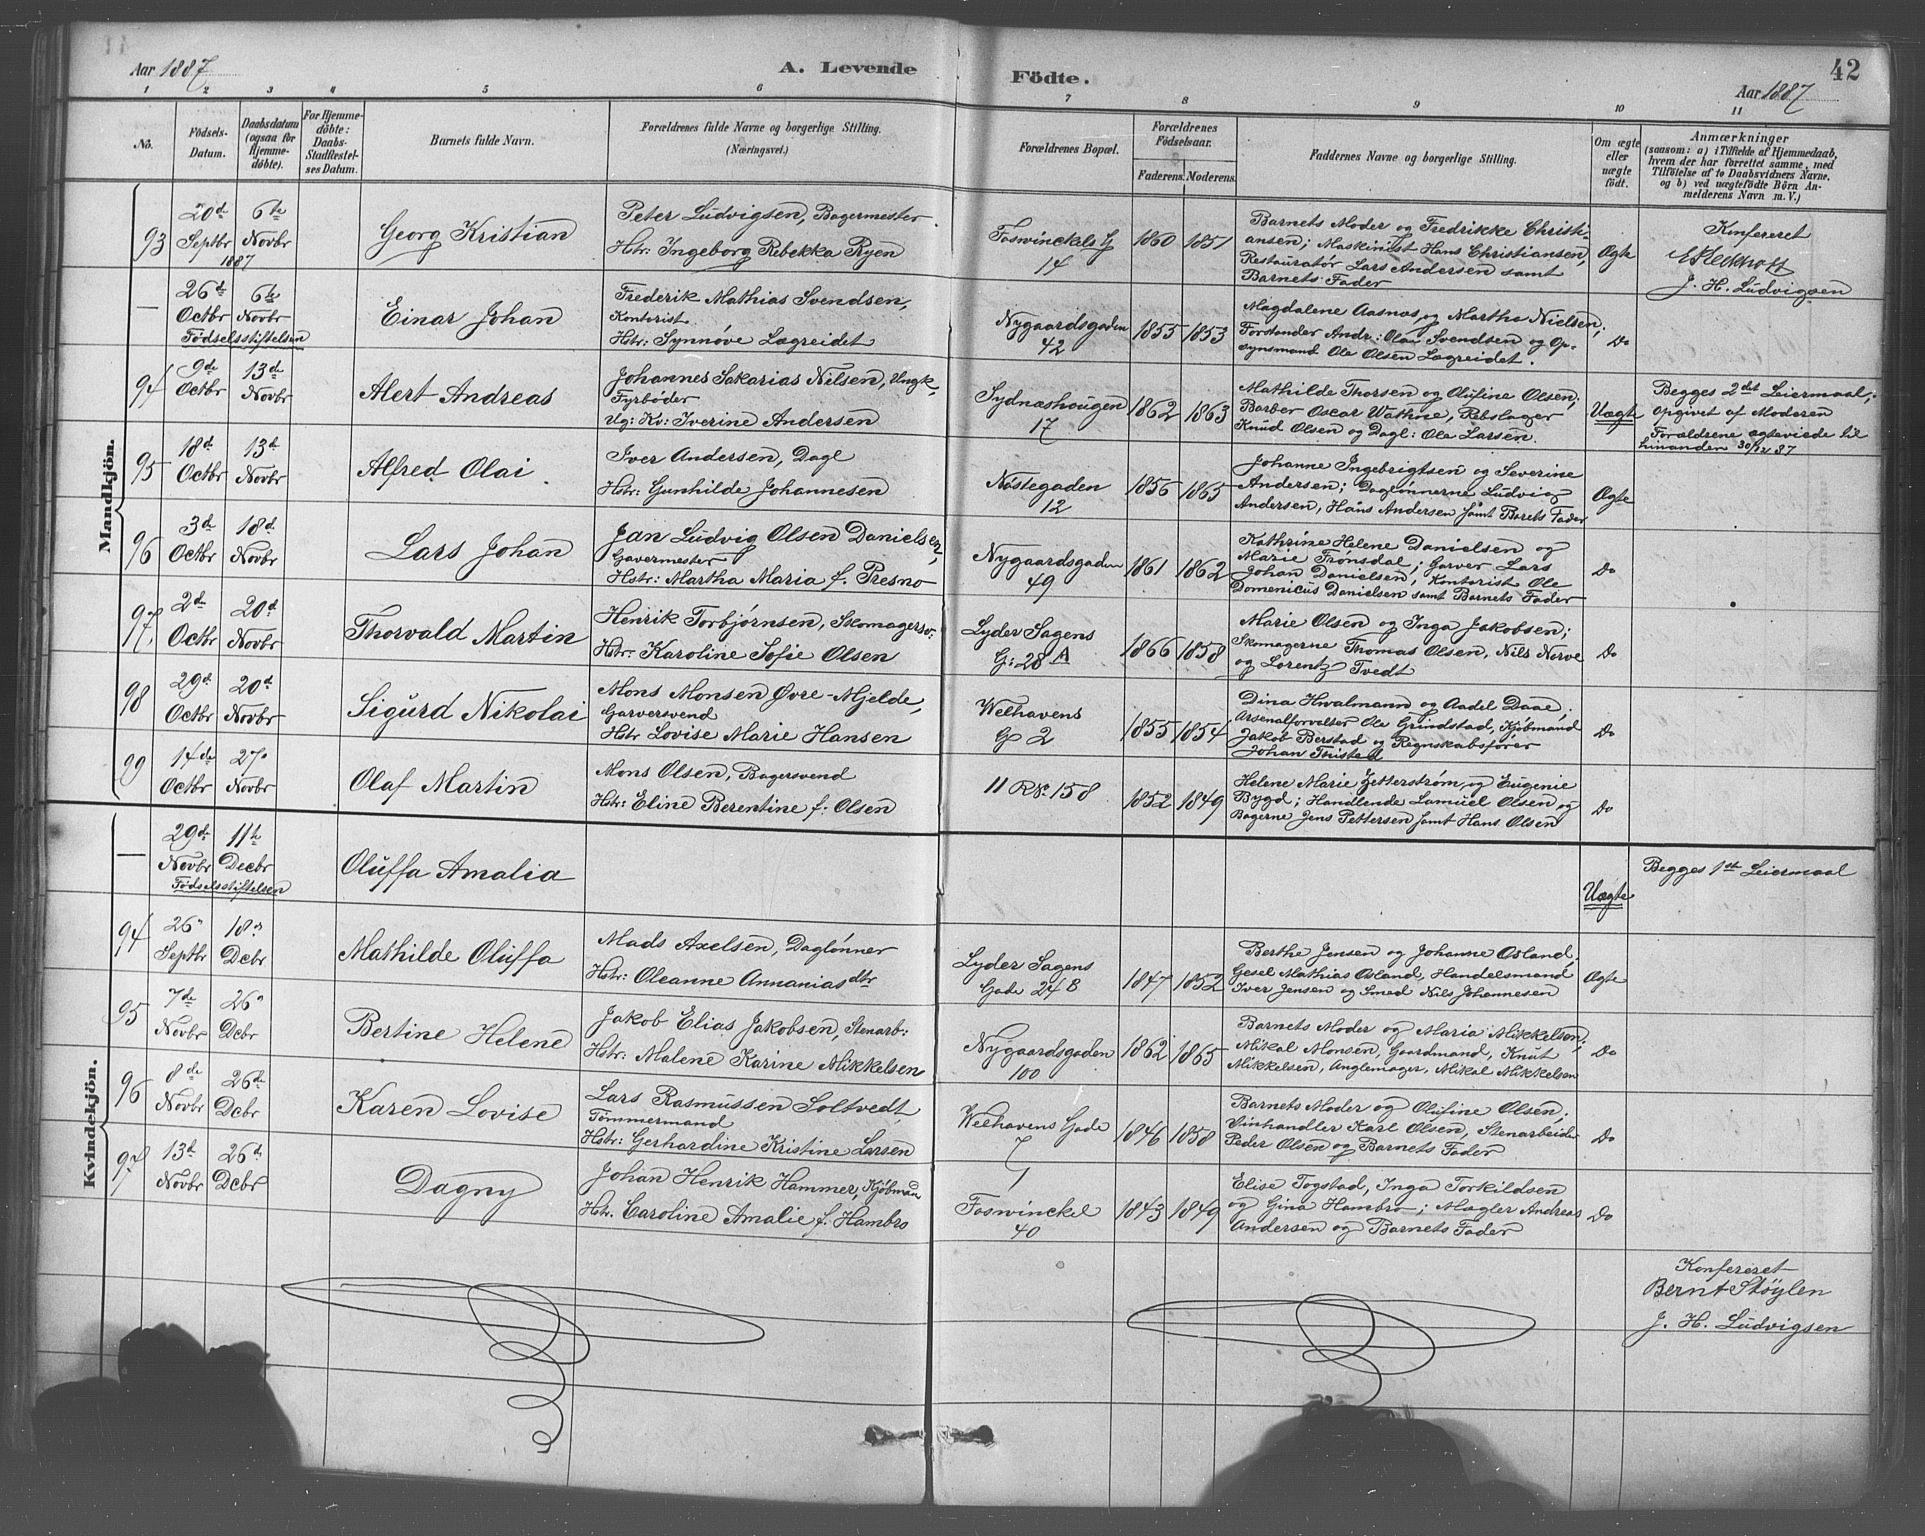 Aar 1887
A. Levende
Födte.
42
Aar 1887
1 2 3 4 5 6 7 8 9 10 11
No.
Födsels-
Datum.
Daabsdatum
(ogsaa for
Hjemme-
döbte).
For Hjemme-
döbte:
Daabs-
Stadfæstel-
ses Datum.
Barnets fulde Navn.
Forældrenes fulde Navne og borgerlige Stilling.
(Næringsvei.)
Forældrenes Bopæl.
Forældrenes
Födselsaar.
Faderens. Moderens.
Faddernes Navne og borgerlige Stilling.
Om ægte
eller
uægte
født.
Anmærkninger
(saasom: a) i Tilfælde af Hjemmedaab,
hvem der har forrettet samme, med
Tilføielse af to Daabsvidners Navne,
og b) ved uægtefödte Börn An-
melderens Navn m. V.)
Mandkjön.
93
20de
Septbr
1887
6te
Novbr
Georg Kristian
Peter Ludvigsen, Bagermester
Hstr: Ingeborg Rebekka Ryen
Foswinckels G
14
1860 1851
Barnets Moder og Fredrikke Christi-
ansen; Maskinist Hans Christiansen,
Restauratør Lars Andersen samt
Barnets Fader
Ægte
Konfereret
J. H. Ludvigsen
—
26de
Octbr
6te
Novbr
Födselsstiftelsen
Einar Johan
Frederik Mathias Svendsen,
Kontorist
Hstr: Synnøve Lægreidet
Nygaardsgaden
42
1855 1853
Magdalene Aasnæs og Martha Nielsen;
Forstander Andr: Olai Svendsen og Op-
synsmand Ole Olsen Lægreidet.
Do
94
9de
Octbr
13de
Novbr
Alert Andreas
Johannes Sakarias Nilsen, Ungk,
Fyrbøder
Ug: Kv: Iverine Andersen
Sydnæshougen
17
1862 1863
Mathilde Thorsen og Olufine Olsen;
Barber Oscar Wathne, Rebslager
Knud Olsen og Dagl: Ole Larsen.
Uægte
Begges 2det Leiermaal;
opgivet af Moderen
Forældrene ægteviede til
hinanden 30/12 87
95
18d
Octbr
13d
Novbr
Alfred Olai.
Iver Andersen, Dagl
Hstr: Gunhilde Johannesen
Nøstegaden
12
1856 1865
Johanne Ingebrigtsen og Severine
Andersen; Dagløn̄erne Ludvig
Andersen, Hans Andersen samt Barets Fader
Ægte
96
3d
Octbr
18d
Novbr
Lars Johan
Jan Ludvig Olsen Danielsen,
Garvermester
Hstr: Martha Maria f. Presno
Nygaardsgaden
49
1861 1862
Kathrine Helene Danielsen og
Marie Trönsdal; Garver Lars
Johan Danielsen, Kontorist Ole
Domenicus Danielsen samt Barnets Fader
Do
97.
2de
Octbr
20d
Novbr
Thorvald Martin
Henrik Torbjørnsen, Skomagersv:
Hstr: Karoline Sofie Olsen
Lyder Sagens
G: 28 A
1866 1858
Marie Olsen og Inga Jakobsen;
Skomagerne Thomas Olsen, Nils Nerve
og Lorentz Tvedt
Do
98
29d
Octbr
20d
Novbr
Sigurd Nikolai
Mons Monsen Øvre-Mjelde,
Garversvend
Hstr Lovise Marie Hansen
Welhavens
G 2
1855 1854
Dina Hwalmann og Aadel Daae;
Arsenalforvalter Ole Grindstad, Kjøbmand
Jakob Berstad og Regnskabsfører
Johan Thisted
Do
99
14de
Octbr
27"
Novbr
Olaf Martin
Mons Olsen, Bagersvend
Hstr: Eline Berentine f. Olsen
11 R No 158
1852 1849
Helene Marie Zetterstrøm og Eugenie
Bygd; Handlende Samuel Olsen og
Bagerne Jens Pettersen samt Hans Olsen
Do
Kvindekjön.
—
29de
Novbr
11te
Decbr
Födselsstiftelsen
Oluffa Amalia
Uægte
Begges 1ste Leiermaal
94
26"
Septbr
18"
Dcbr
Mathilde Oluffa
Mads Axelsen, Daglønner
Hstr: Oleanne Annaniasdtr
Lyder Sagens
Gade 24 B
1847 1852
Berthe Jensen og Johanne Osland,
Gesel Mathias Osland, Handelsmand
Iver Jensen og Smed Nils Johannesen
Ægte
95
7de
Novbr
26"
Dcbr
Bertine Helene
Jakob Elias Jakobsen, Stenarb:
Hstr: Malene Karine Mikkelsen
Nygaardsgaden
100
1862 1865
Barnets Moder og Maria Mikkelsen;
Mikal Monsen, Gaardmand, Knut
Mikkelsen, Anglemager, Mikal Mikkelsen
Do
96
8de
Novbr
26de
Dcbr
Karen Lovise
Lars Rasmussen Soltvedt
Tömmermand
Hstr: Gerhardine Kristine Larsen
Welhavens Gade
7
1846 1858
Barnets Moder og Olufine Olsen;
Vinhandler Karl Olsen, Stenarbeider
Peder Olsen og Barnets Fader
Do
97
13d
Novbr
26d
Dcbr
Dagny
Johan Henrik Hammer, Kjøbmān
Hstr. Caroline Amalie f. Hambro
Foswinckel
40
1843 1849
Elise Togstad, Inga Torkildsen
og Gina Hambro; Mægler Andreas
Andersen og Barnets Fader
Do
Konfereret
Bernt Støylen
J. H. Ludvigsen